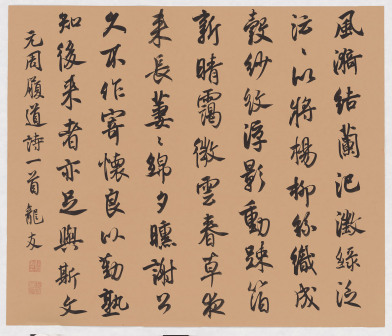 風漪結蘭汜激綠泛
泛以將楊柳絲織成
縠紗紋浮影動疎箔
新晴靄微雲春草夜
来長萋萋綿夕曛謝公
久不作寄懷良以勤孰
知後来者亦足與斯文
元周履道詩一首龍友